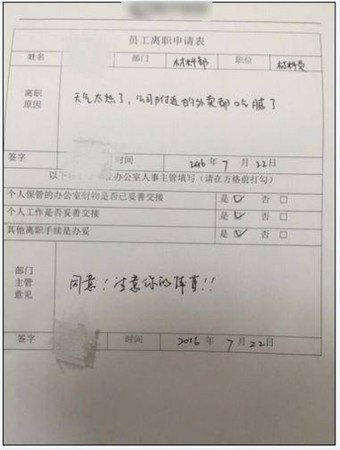 员工离职申请表
姓名 部门 材料部 职位 材料员
离职原因 天气太热了，公司附近的外卖都吃腻了
签字 时间 2016 年 7 月 22 日
办公室人事主管填写（请在方格前打勾）
个人保管的办公室财物是否已妥善交接 是☑ 否☐
个人工作是否妥善交接 是☑ 否☐
其他离职手续是办妥 是☑ 否☐
部门主管意见 同意！注意你的体重！！
签字 时间 2016 年 7 月 22 日